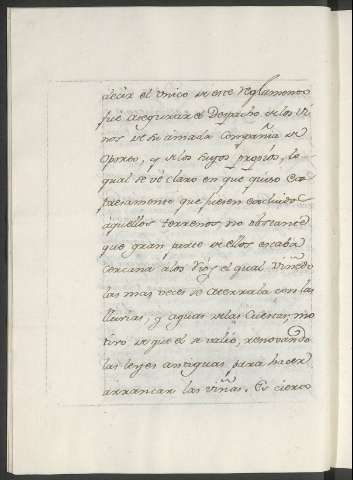 decir el unico de este reglamento
fué asegurar el Despacho de los Vi-
nos de su amada Compañia de
Oporto, y de los suyos propios, lo
qual se vé claro en que quiso ex-
presamente que fuesen excluidos
aquellos terrenos, no obstante
que gran parte de ellos estaba
cercana a los Rios, el qual Viñedo
las mas veces se aterraba con las
lluvias, y aguas de las Cuestas, mo
tivo de que el se valió, renovando
las leyes antiguas, para hacer
arrancar las viñas. Es cierto